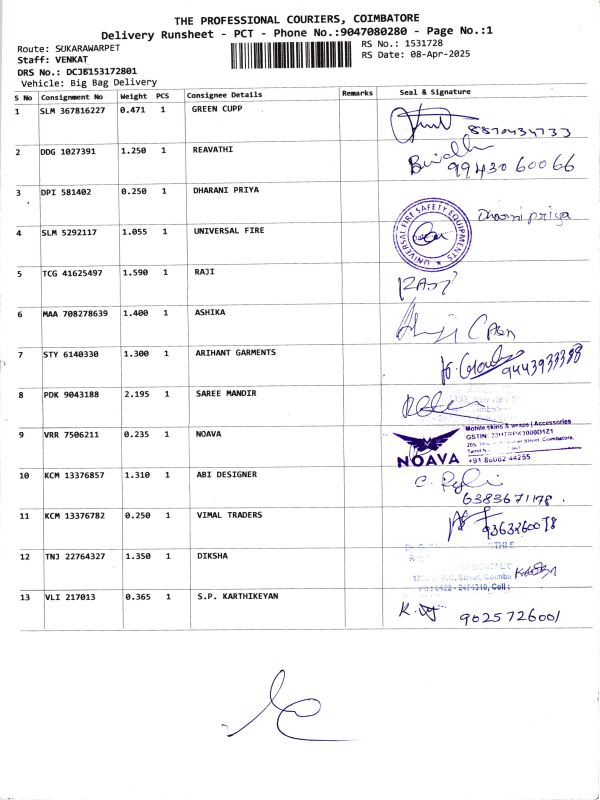 THE PROFESSIONAL COURIERS, COIMBATORE
Delivery Runsheet - PCT - Phone No.:9047080280 - Page No.:1
Route: SUKARAWARPET
RS No.: 1531728
Staff: VENKAT
RS Date: 08-Apr-2025
DRS No.: DCJB153172801
Vehicle: Big Bag Delivery
S No Consignment No Weight PCS Consignee Details Remarks Seal & Signature
1 SLM 367816227 0.471 1 GREEN CUPP
8870434733
2 DDG 1027391 1.250 1 REAVATHI
99430 60066
3 DPI 581402 0.250 1 DHARANI PRIYA
Dharani priya
UNIVERSAL FIRE SAFETY EQUIPMENTS
4 SLM 5292117 1.055 1 UNIVERSAL FIRE
5 TCG 41625497 1.590 1 RAJI
RAJI
6 MAA 708278639 1.400 1 ASHIKA
7 STY 6140330 1.300 1 ARIHANT GARMENTS
9443933388
8 PDK 9043188 2.195 1 SAREE MANDIR
9 VRR 7506211 0.235 1 NOAVA
Mobile skins & wraps | Accessories
GSTIN: 33HTRPK3000D1Z1
Street, Coimbatore,
NOAVA +91 86082 44255
10 KCM 13376857 1.310 1 ABI DESIGNER
6383671178.
11 KCM 13376782 0.250 1 VIMAL TRADERS
9363260078
12 TNJ 22764327 1.350 1 DIKSHA
Street, Coimba
Ph: 0422 - 2474310, Cell:
13 VLI 217013 0.365 1 S.P. KARTHIKEYAN
9025726001